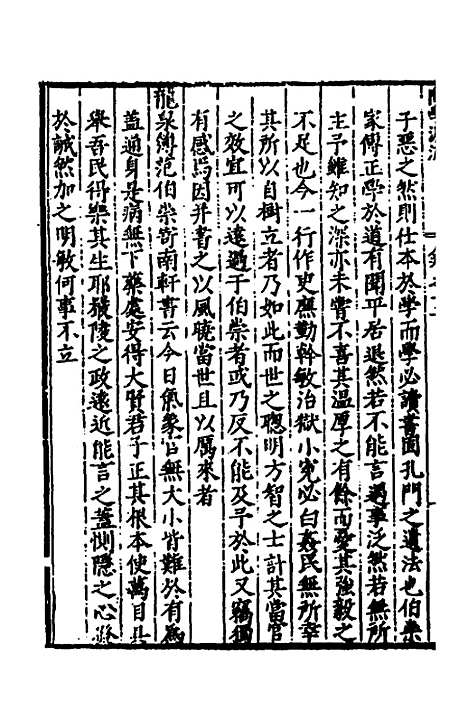 子惡之然則仕本於學而學必讀書固孔門之遺法也伯崇
家傳正學於道有聞平居退然若不能言遇事泛然若無所
主予雖知之深亦未嘗不喜其溫厚之有餘而憂其強毅之
不足也今一行作吏應勤幹敏治獄小冤必白姦民無所幸
其所以自樹立者乃如此而世之聰明方智之士計其當官
之效宜可以遠過于伯崇者或乃反不能及予於此又竊獨
有感焉因并書之以風曉當世且以厲來者
龍泉 范伯崇寄南軒書云今日氣象官無大小皆難於有為
蓋通身是病無下藥處安得大賢君子正其根本使萬目具
舉吾民得樂其生耶嚴陵之政遠近能言之蓋惻隱之心發
於誠然加之明敏何事不立